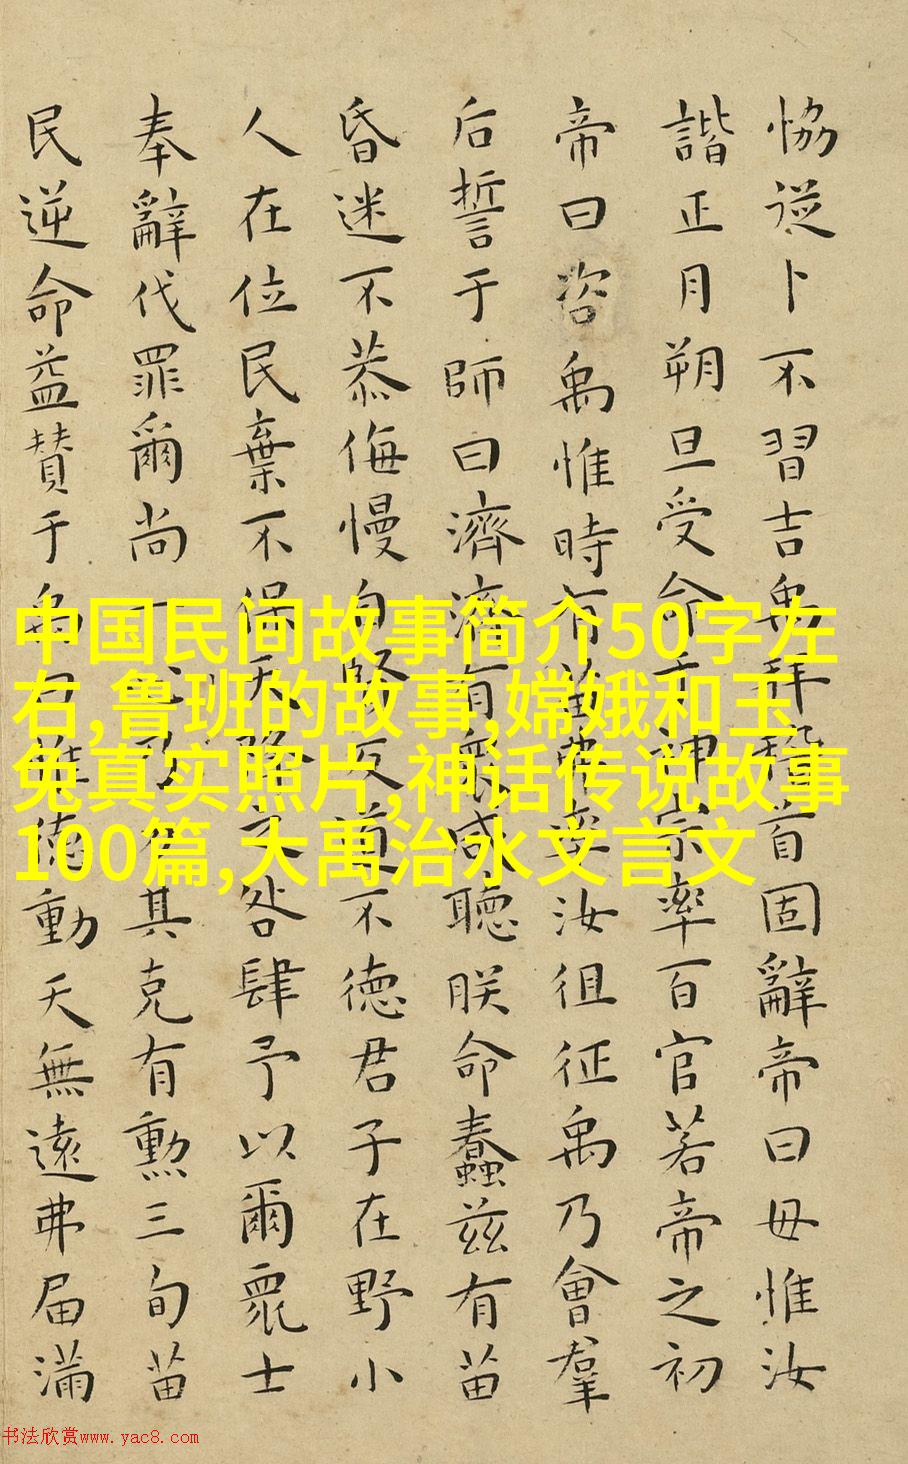 恊從卜不習吉禹拜稽首固辭帝曰毋惟汝
諧正月朔旦受命于神宗率百官若帝之初
帝曰咨禹惟時有苗弗率汝徂征禹乃會羣
后誓于師曰濟濟有衆咸聽朕命蠢兹有苗
昏迷不恭侮慢自賢反道不徳君子在野小
人在位民棄不保天降之咎肆予以爾衆士
奉辭伐罪爾尚一其克有勲三旬苗
民逆命益賛于禹曰惟徳動天無遠弗届滿
中国民间故事简介50字左
右,鲁班的故事,嫦娥和玉
兔真实照片,神话传说故事
100篇,大禹治水文言文
书法欣赏www.yac8.com